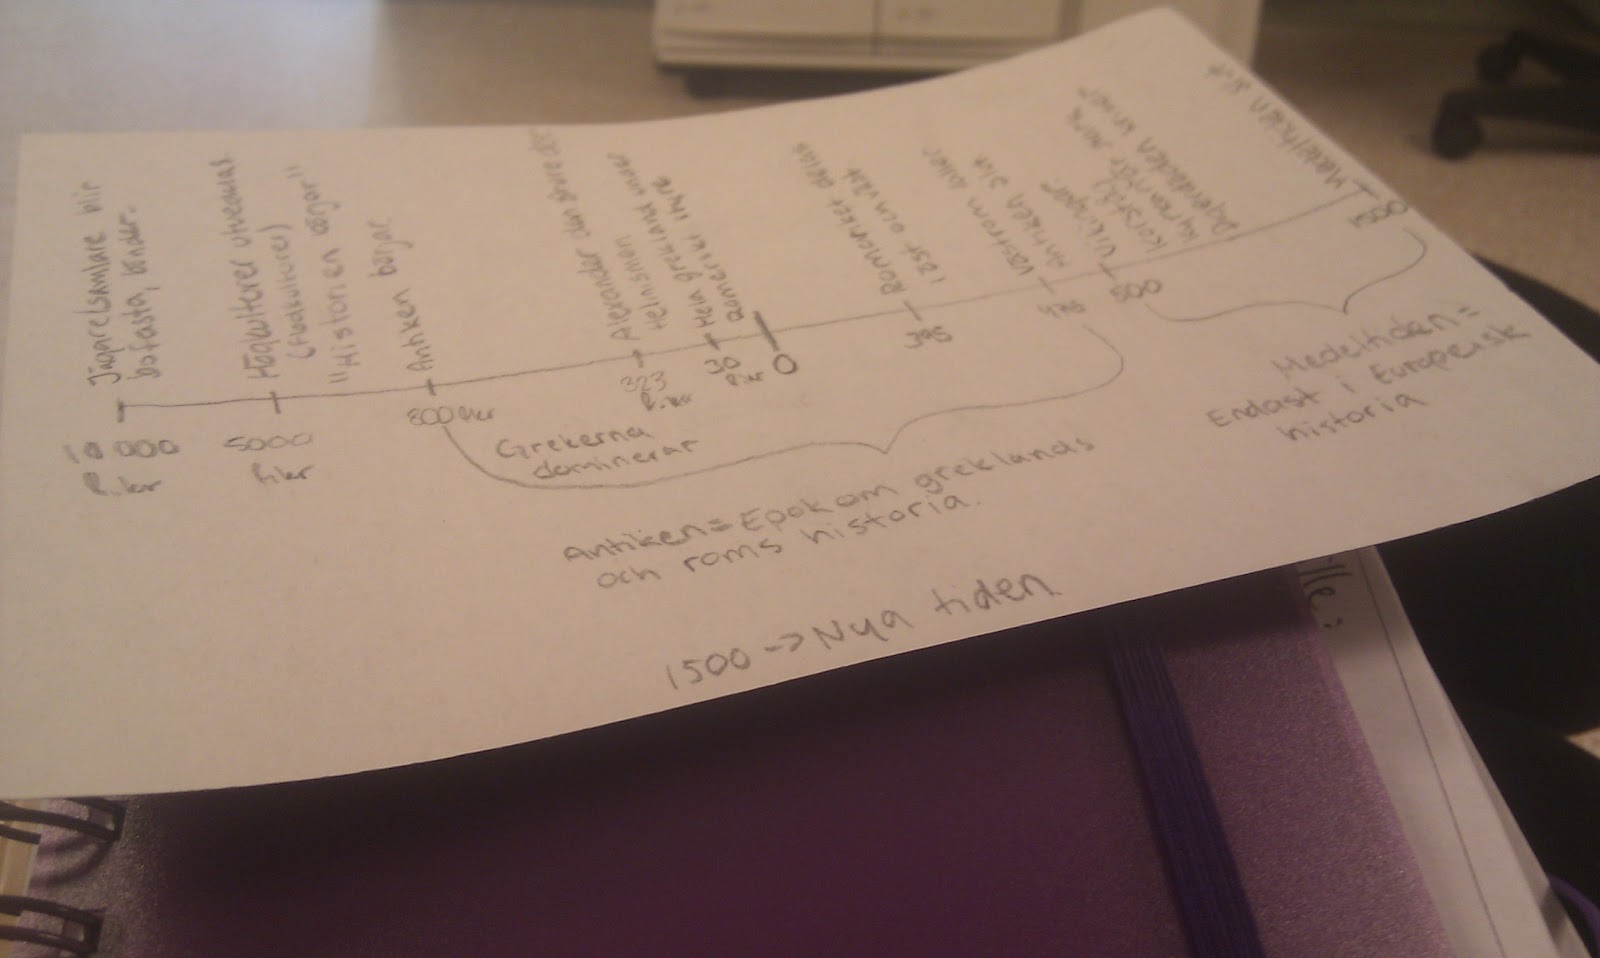 Jägare/samlare blir
bofasta, bönder.
10 000
f.kr
Högkulturer utvecklas
(flodkulturer)
"Historien börjar"
5000
f.kr
Antiken börjar
800
Grekerna
dominerar
Alexander den store dör
Hellnismen
323
f.kr
Hela grekland under
Romerskt styre
30
f.kr
0
Romarriket delas
i öst och väst
395
Västrom faller
Antiken slut
476
Vikingar
Korståg
Digerdöden
500
Medeltiden slut
1500
Antiken = Epok om greklands
och roms historia.
Medeltiden =
Endast i Europeisk
historia
1500 -> Nya tiden